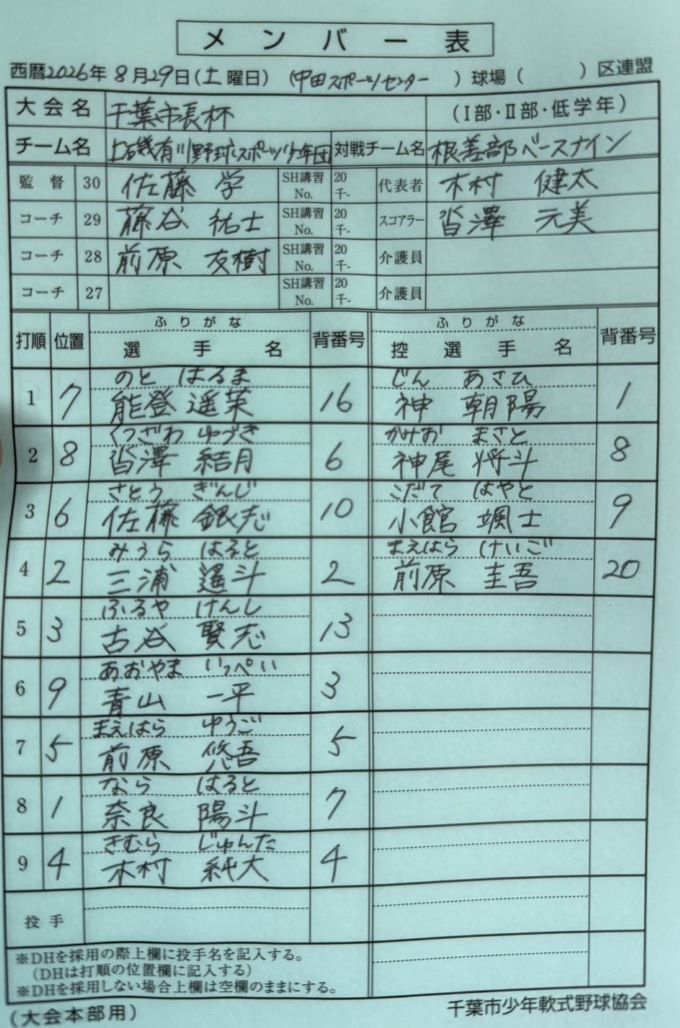 メンバー表
西暦2026年 8月29日(土曜日) (中田スポーツセンター )球場( )区連盟
大会名 千葉市長杯 (Ⅰ部・Ⅱ部・低学年)
チーム名 磯有 野球スポーツ少年団 対戦チーム名 根善部ベースナイン
監督 30 佐藤 学 SH講習No. 20千- 代表者 木村 健太
コーチ 29 藤谷 祐士 SH講習No. 20千- スコアラー 沓澤 元美
コーチ 28 前原 友樹 SH講習No. 20千- 介護員
コーチ 27 SH講習No. 20千- 介護員
打順 位置 ふりがな 選手名 背番号 ふりがな 控選手名 背番号
のと はるま じん あさひ
1 7 能登 遥英 16 神 朝陽 1
くつざわ ゆづき かみお まさと
2 8 沓澤 結月 6 神尾 将斗 8
さとう ぎんじ こだて はやと
3 6 佐藤 銀志 10 小館 颯士 9
みうら はると まえはら けいご
4 2 三浦 遥斗 2 前原 圭吾 20
ふるや けんし
5 3 古谷 賢志 13
あおやま いっぺい
6 9 青山 一平 3
まえはら ゆうご
7 5 前原 悠吾 5
なら はると
8 1 奈良 陽斗 7
きむら じゅんた
9 4 木村 純大 4
投手
※DHを採用の際上欄に投手名を記入する。
(DHは打順の位置欄に記入する)
※DHを採用しない場合上欄は空欄のままにする。
(大会本部用) 千葉市少年軟式野球協会